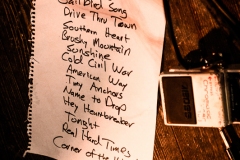 Song
Drive Thru Town
Southern Heart
Brushy Mountain
Sunshine
Cold Civil War
American Way
Tiny Anchors
Name to Drop
Hey Heartbreaker
Tonight
Real Hard Times
Corner of the